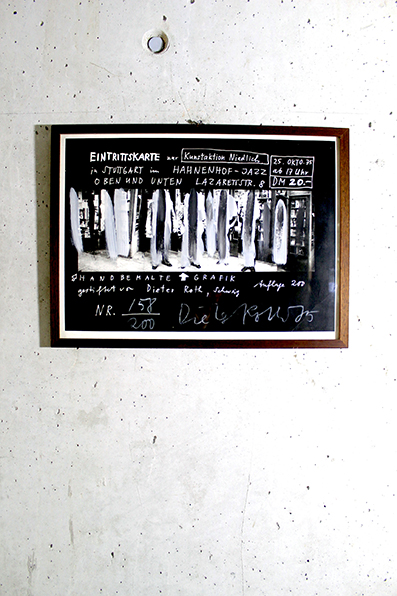 EINTRITTSKARTE zur Kunstaktion Niedlich
in STUTTGART im HAHNENHOF-JAZZ
OBEN UND UNTEN LAZARETTSTR. 8
25. OKTO. 75
ab 17 Uhr
DM 20.-
HANDBEMALTE GRAFIK
gestiftet von Dieter Roth, Auflage 200
NR. 158/200